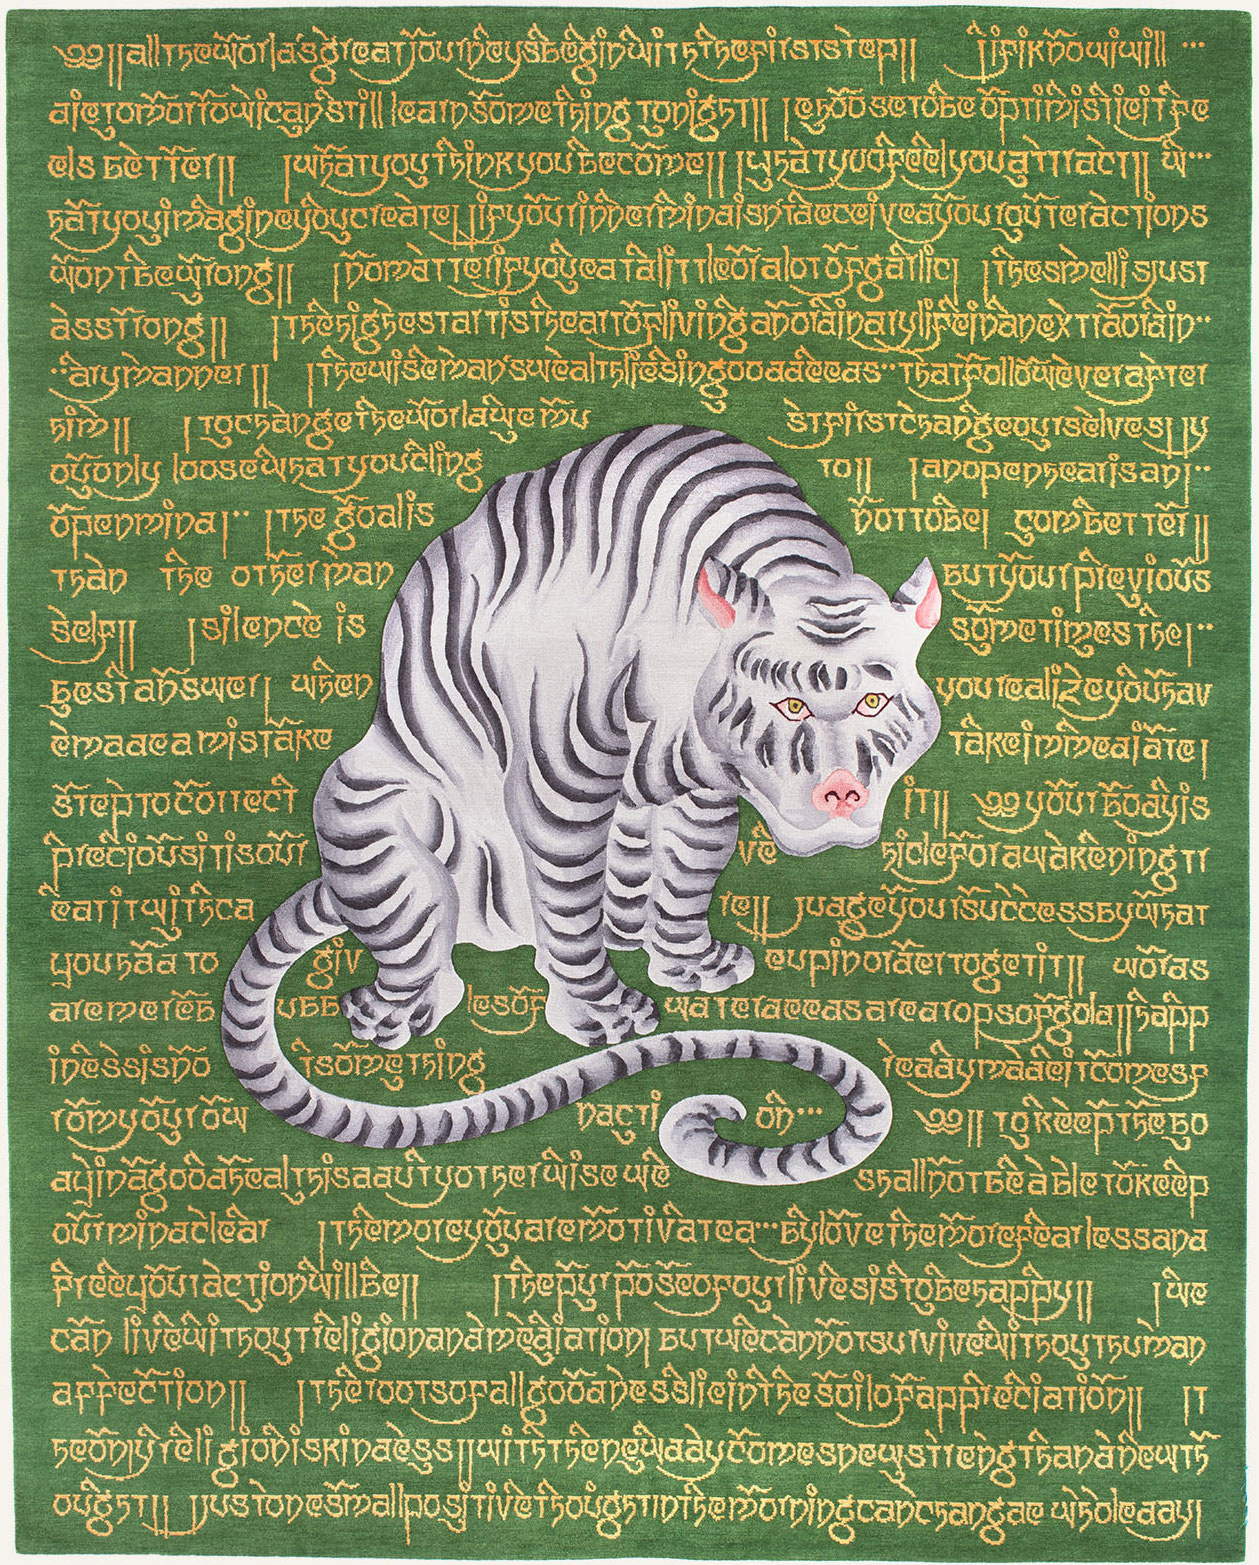 ༄༅།། all the world's great journeys begin with the first step || | if i know i will ...
die tomorrow i can still learn something tonight || | choose to be optimistic it fe
els better || | what you think you become || what you feel you attract || w...
hat you imagine you create || if your inner mind isn't deceived your outer actions
won't be wrong || | no matter if you eat a little or a lot of garlic | the smell is just
as strong || | the highest art is the art of living an ordinary life in an extraordin..
..ary manner || | the wise man's wealth lies in good deeds.. that follow ever after
him || | to change the world we mu st first change ourselves || y
ou only loose what you cling to || | an open heart is an | ..
open mind | .. | the goal is not to be | gom better ||
than the other man but your previous
self || | silence is sometimes the | ..
best answer | when you realize you hav
e made a mistake take immediate |
step to correct it || ༄༅ your body is
precious it is our ve hicle for awakening tr
eat it with ca re || judge your success by what
you had to giv e up in order to get it || words
are mere b ubb les of water deeds are drops of gold || happ
iness is no t something ready made it comes f
rom your ow n acti on... ༄༅ || to keep the bo
dy in a good health is a duty otherwise we shall not be able to keep
our mind clear | the more you are motivated... by love the more fearless and
free your action will be || | the purpose of our lives is to be happy || | we
can live without religion and mediation | but we cannot survive without human
affection || | the roots of all goodness lie in the soil of appreciation || | t
he only religion is kindness || with the new day comes new strength and a new th
ought || just one small positive thought in the morning can change a whole day |